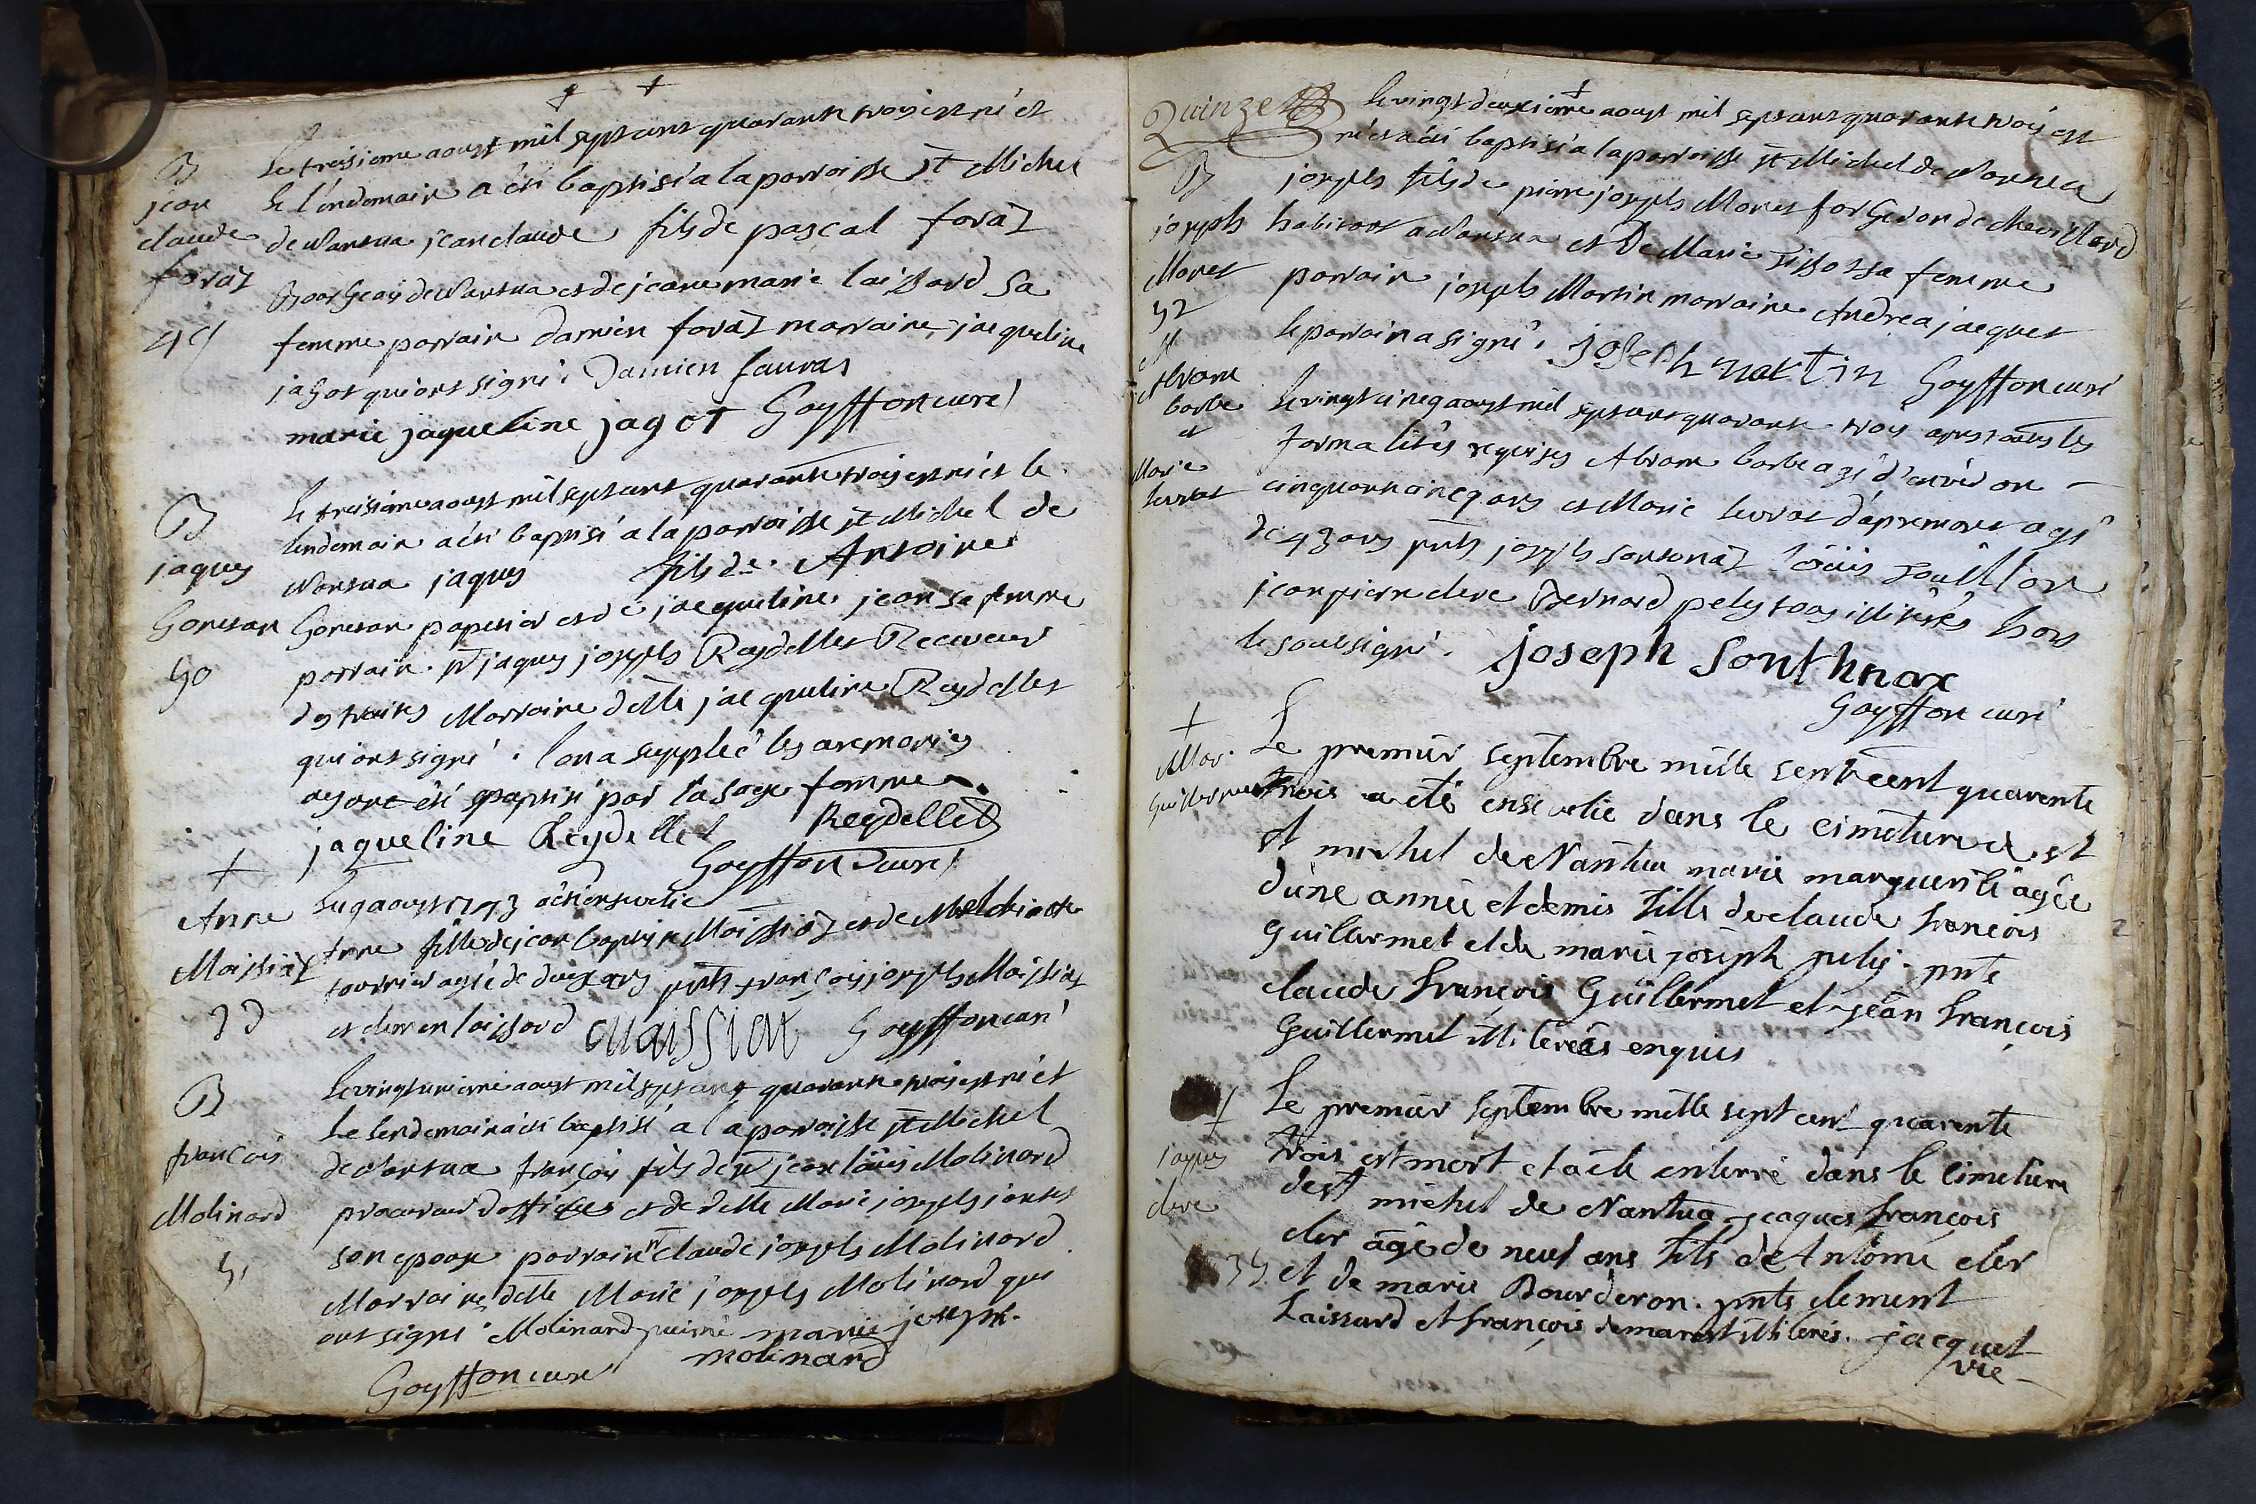 B
jean
claude
foraz
49
Le treisieme aoust mil septcent quarante trois est né et
le l'endemain a été baptisé a la parroisse st Michel
de Nantua jean claude fils de pascal foraz
Bourgeois de Nantua et de jeane marie laissard sa
femme parrain damien foraz marraine jacqueline
jagot qui ont signé. Damien fauras
marie jaqueline jagot Goyffon curé
B
jaques
Gonetan
50
le treisieme aoust mil septcent quarante trois est né et le
lendemain a été baptisé a la parroisse st Michel de
Nantua jaques fils de Antoine
Gonetan papetier et de jacqueline jean sa femme
parrain Sr jaques joseph Reydellet Receveur
des traites Marraine delle jacqueline Reydellet
qui ont signé. l'on a supplée les ceremonies
ayant été baptisé par la sage femme
jaqueline Reydellet Reydellet
Goyffon curé
+
Anne
Moissiat
Le 19 aoust 1743 a été ensevelie
Anne fille de jean baptiste Moissiat et de Melchiotte
tournier agée de deux ans pnts françois joseph Moissiat
et clement laissard Moissiat Goyffon curé
B
françois
Molinard
51
Le vingtunieme aoust mil septcent quarante trois est né et
Le lendemain a été baptisé a la parroisse st Michel
de Nantua françois fils de Sr jean loüis Molinard
procureur d'office et de delle Marie joseph jantet
son epouse parrain Sr claude joseph Molinard
Marraine delle Marie joseph Molinard qui
ont signé. Molinard puiné marie joseph
molinard
Goyffon curé
Quinze
B
joseph
Monet
52
Le vingt deuxieme aoust mil septcent quarante trois est
né et a été baptisé a la parroisse st Michel de Nantua
joseph fils de pierre joseph Monet forgeron de chevillard
habitant a Nantua et De Marie Tissot sa femme
parrain joseph Martin marraine Andrea jacquet
le parrain a signé. joseph martin Goyffon curé
M
Abram
barbe
et
Marie
levrat
Le vingt cinq aoust mil septcent quarante trois apres toutes les
formalités requises Abram barbe agé d'environ
cinquante cinq ans et Marie levrat d'apremont agé
de 43 ans pnts joseph sontonax loüis
jean pierre clerc Bernard pely tous illiterés hors
le soubsigné. joseph Sonthnax
Goyffon curé
+
Mar.
Guillermet
Le premier septembre mille sept cent quarente
trois a été ensevelie dans le cimetiere de st
michel de Nantua marie marguerite agée
d'une année et demis fille de claude françois
Guillermet et de marie joseph pely. pnts
claude françois Guillermet et jean françois
Guillermet illiterés enquis
+
jaques
clerc
35
Le premier septembre mille sept cent quarente
trois est mort et a été enterré dans le cimetiere
de st michel de Nantua jacques françois
cler agé de neuf ans fils de Antoine cler
et de marie Bourderon. pnts clement
Laissard et françois demarest illiterés. jacquet
vic